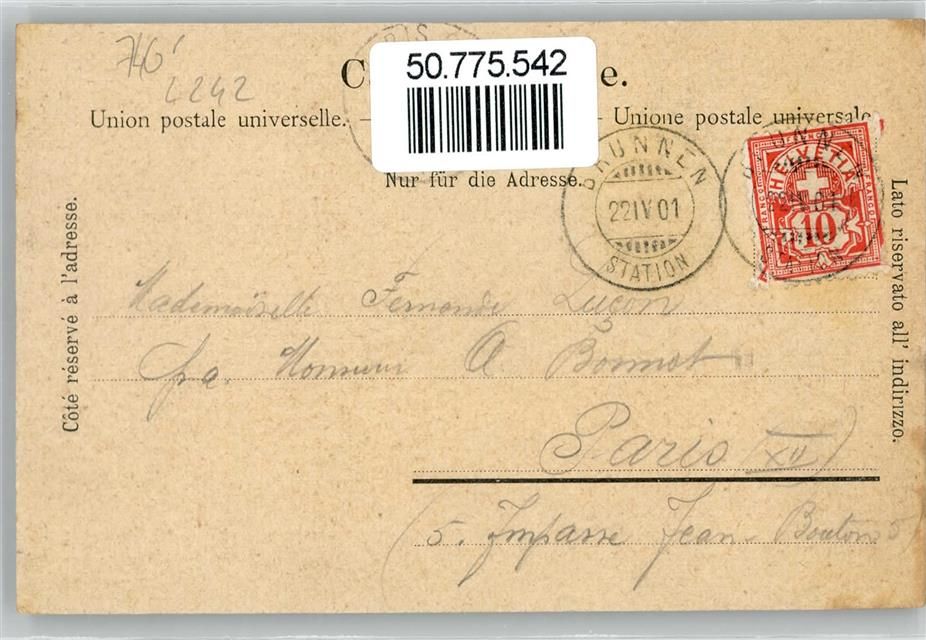 746
50.775.542
Union postale universelle. — Unione postale universale
Nur für die Adresse.
BRUNNEN
22 IV 01
STATION
BRUNNEN
HELVETIA
FRANCO
FRANCO
10
Côté réservé à l'adresse.
Lato riservato all' indirizzo.
Mademoiselle Fernande Luçon
pa. Monsieur A Bonnot
Paris (XII)
(5. Impasse Jean Bouton 5)